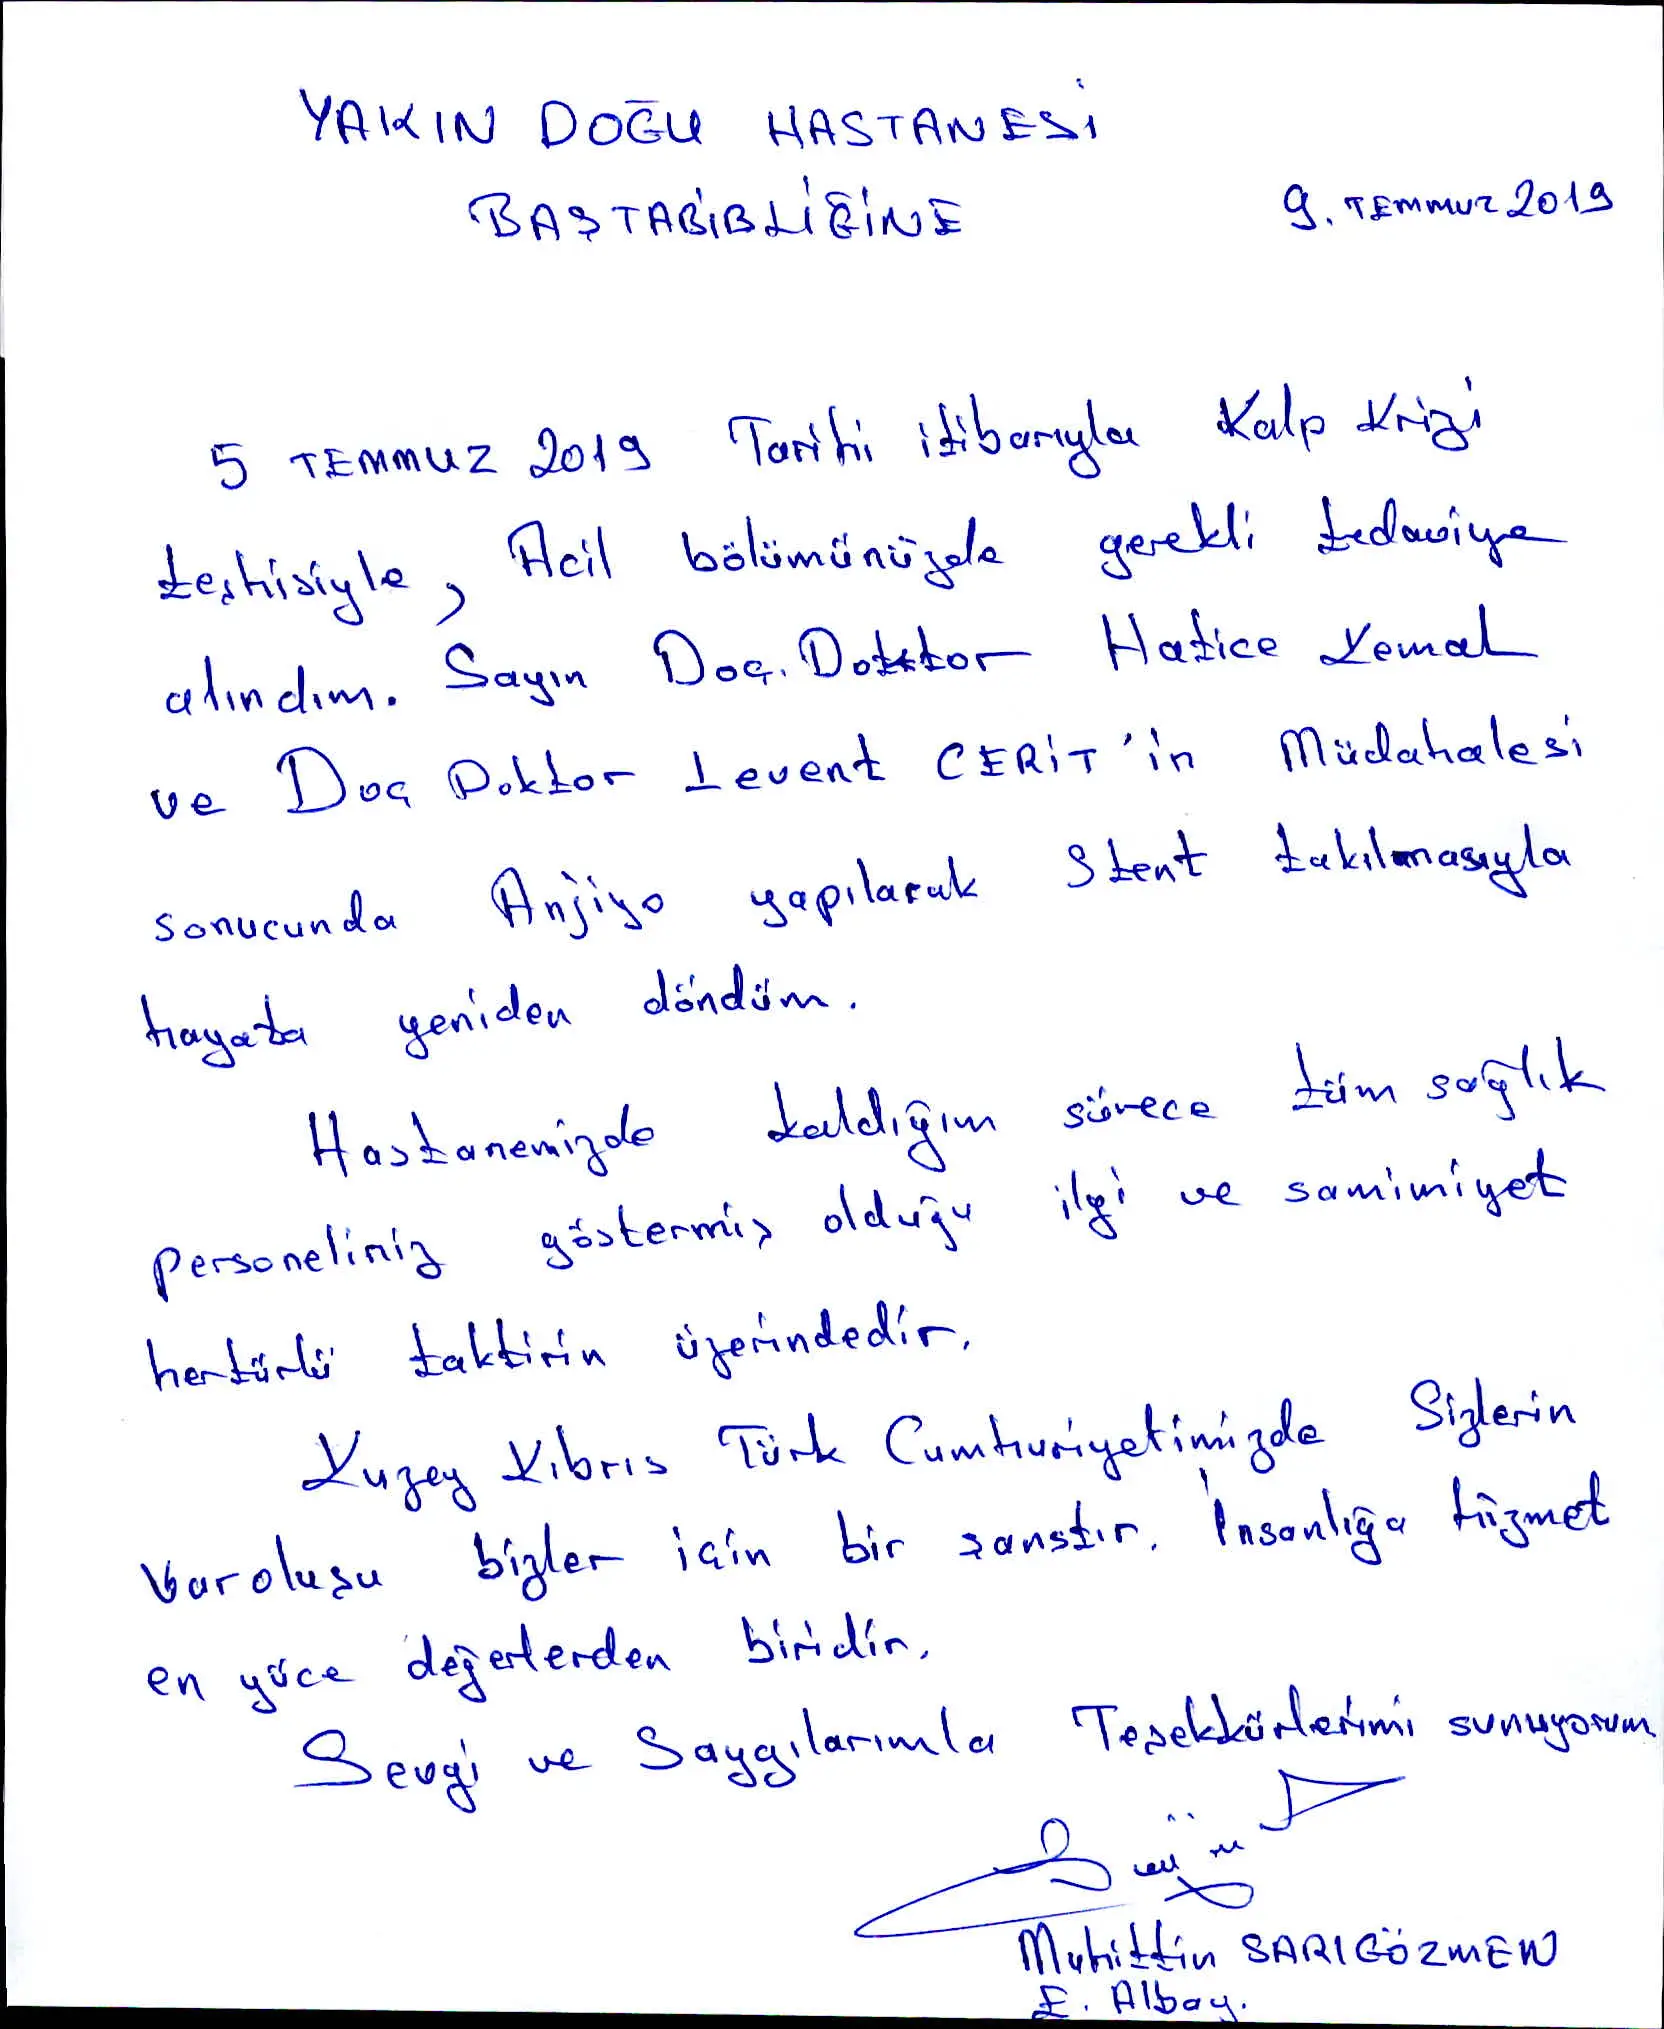 YAKIN DOĞU HASTANESİ
BAŞTABİBLİĞİNE
9. TEMMUZ 2019
5 TEMMUZ 2019 Tarihi itibarıyla Kalp Krizi
teşhisiyle, Acil bölümünüzde gerekli tedaviye
alındım. Sayın Doç. Doktor Hatice Kemal
ve Doç Doktor Levent CERİT'in Müdahalesi
sonucunda Anjiyo yapılarak Stent takılmasıyla
hayata yeniden döndüm.
Hastanemizde kaldığım sürece tüm sağlık
personeliniz göstermiş olduğu ilgi ve samimiyet
hertürlü taktirin üzerindedir.
Kuzey Kıbrıs Türk Cumhuriyetimizde Sizlerin
varoluşu bizler için bir şanstır. İnsanlığa hizmet
en yüce değerlerden biridir.
Sevgi ve Saygılarımla Teşekkürlerimi sunuyorum
Muhittin SARIGÖZMEN
E. Albay.